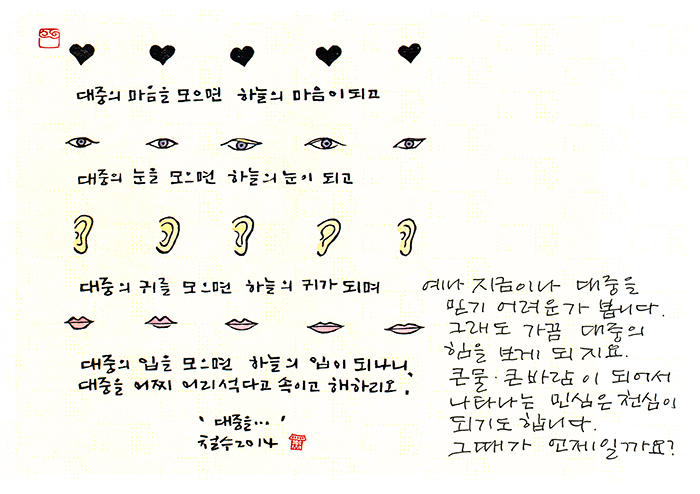 대중의 마음을 모으면 하늘의 마음이 되고
대중의 눈을 모으면 하늘의 눈이 되고
대중의 귀를 모으면 하늘의 귀가 되며
대중의 입을 모으면 하늘의 입이 되나니,
대중을 어찌 어리석다고 속이고 해하리요.
'대중을...'
철수2014
예나 지금이나 대중을
믿기 어려운가 봅니다.
그래도 가끔 대중의
힘을 보게 되지요.
큰물·큰바람이 되어서
나타나는 민심은 천심이
되기도 합니다.
그때가 언제일까요?